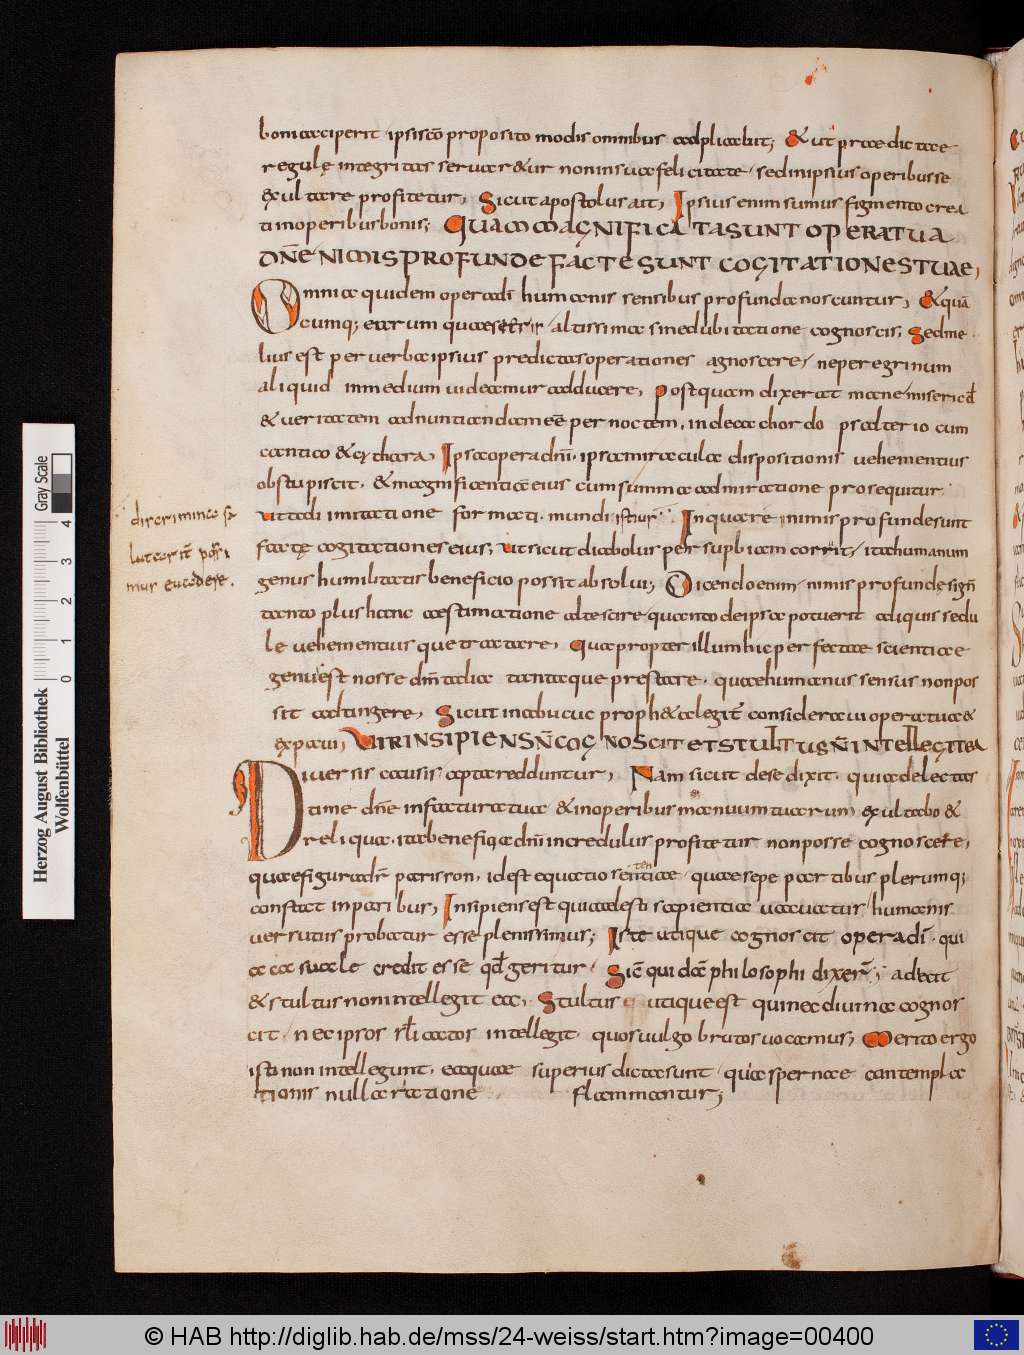 boni acciperit ipsis co proposito modis omnibus adplicabit; & ut praedictae
regulę integritas servaretur non in sua felicitate sed in ipsius operibus se
exultare profitetur, Sicut apostolus ait, Ipsius enim sumus figmento crea
ti in operibus bonis; QUAM MAGNIFICATA SUNT OPERA TUA
DNE NIMIS PROFUNDE FACTE SUNT COGITATIONES TUAE,
Omnia quidem opera di humanis sensibus profunda noscuntur, & quā
cumq; earum quaesieris altissima sine dubitatione cognoscis; Sed me
lius est per verba ipsius predictas operationes agnoscere, ne peregrinum
aliquid in medium videamur adducere, postquam dixerat mane misericd
& veritatem adnuntiandam eē per noctem, in decachordo psalterio cum
cantico & cythara, Ipsa opera dni ipsa miracula dispositionis vehementius
obstupiscit, & magnificentiae eius cum summa admiratione prosequitur
ut ad imitatione formati mundi istius Inquare nimis profunde sunt
factę cogitationes eius; ut sicut diabolus per supbiam corrit, ita humanum
genus humilitatis beneficio possit absolui; Dicendo enim nimis profunde sign
tanto plus hanc aestimatione altescire quanto de ipsa potuerit aliquis sedu
le vehementius que tractare, Quapropter illum hic perfectae scientiae
genus est nosse dm talia tantaque prestare, quae humanus sensus non pos
sit adtingere, Sicut in abucuc propheta legit consideravi opera tua &
expavi, VIR INSIPIENS N COGNOSCIT ET STULTUS N INTELLEGIT EA
Diversis causis apta redduntur, Nam sicut de se dixit quia delectas
ti me dne in factura tua & in operibus manuum tuarum exultabo &
reliqua, ita beneficia dni incredulus profitetur non posse cognoscere,
quae figura dr parisson, id est equatio sententiae quae sepe partibus plerumq;
constat in paribus, Insipiens est qui caelesti sapientia vacuatus humanis
versutiis probatur esse plenissimus; Iste utique cognoscit opera di, qui
a casuale credit esse qd geritur, Sic quida philosophi dixer; adecit
& stultus non intellegit ea, Stultus utique est qui nec divina cognos
cit, nec ipsos rli actos intellegit quos vulgo brutos vocamus; Merito ergo
isti non intellegunt, ea quae superius dicta sunt quia spernae contempla
tionis nulla ratione flammantur;
discriminas
lutarit possi
mur evadere.
Herzog August Bibliothek
Wolfenbüttel
Gray Scale
0 1 2 3 4
© HAB http://diglib.hab.de/mss/24-weiss/start.htm?image=00400